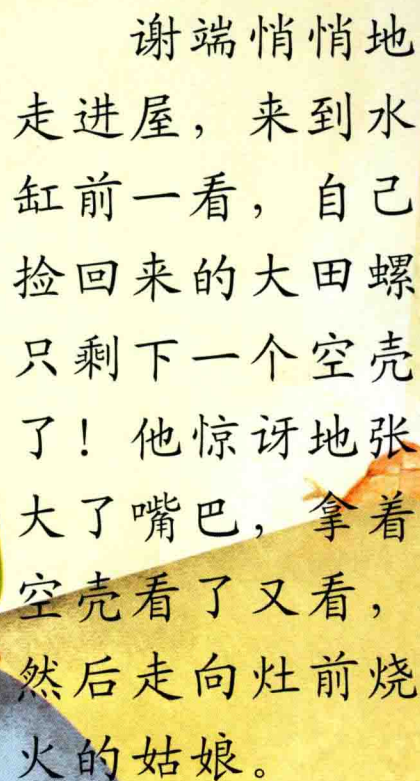 谢端悄悄地
走进屋，来到水
缸前一看，自己
捡回来的大田螺
只剩下一个空壳
了！他惊讶地张
大了嘴巴，拿着
空壳看了又看，
然后走向灶前烧
火的姑娘。